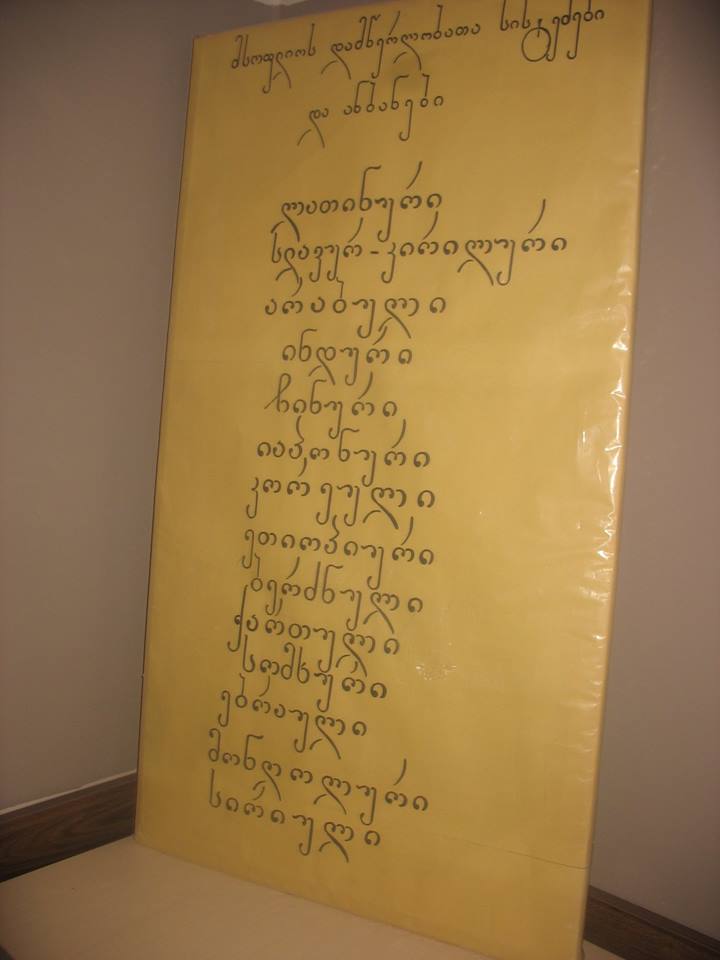 მსოფლიოს დამწერლობათა სისტემები
და ანბანები
ლათინური
სლავურ-კირილური
არაბული
ინდური
ჩინური
იაპონური
კორეული
ეთიოპიური
ბერძნული
ქართული
სომხური
ებრაული
მონღოლური
სირიული